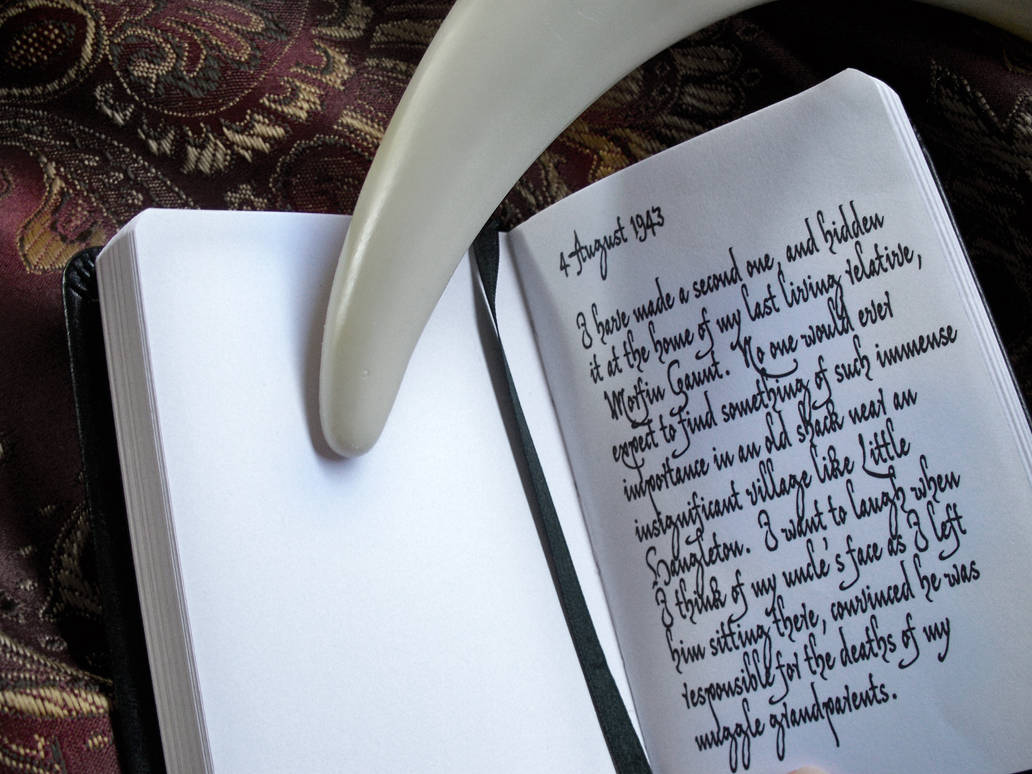 4 August 1943
I have made a second one, and hidden
it at the home of my last living relative,
Morfin Gaunt. No one would ever
expect to find something of such immense
importance in an old shack near an
insignificant village like Little
Hangleton. I want to laugh when
I think of my uncle's face as I left
him sitting there, convinced he was
responsible for the deaths of my
muggle grandparents.